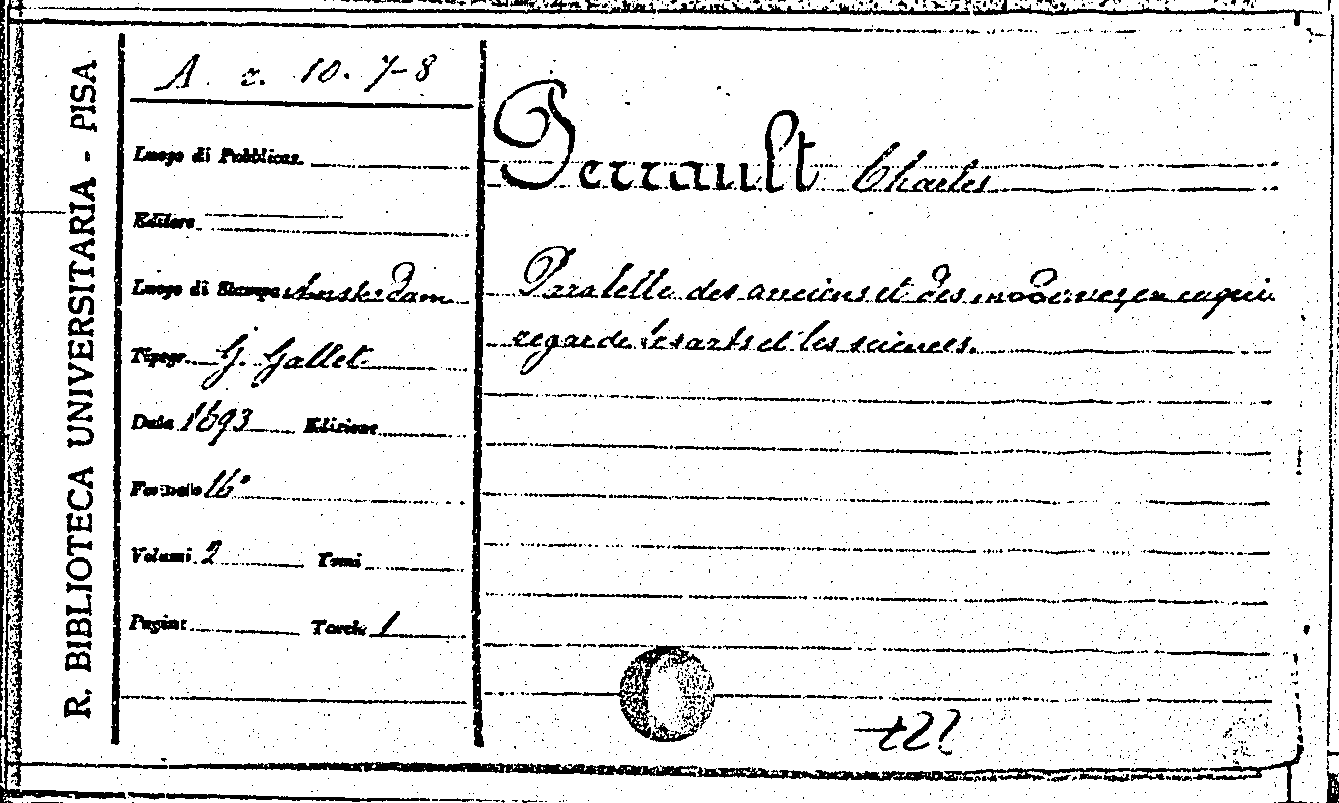 R. BIBLIOTECA UNIVERSITARIA - PISA
A. c. 10. 7-8
Luogo di Pubblicaz.
Editore
Luogo di Stampa Amsterdam
Tipogr. G. Gallet
Data 1693 Edizione
Formato 16°
Volumi 2 Tomi
Pagine Tavole 1
Perrault Charles
Paralelle des anciens et des modernes, en ce qui
regarde les arts et les sciences.